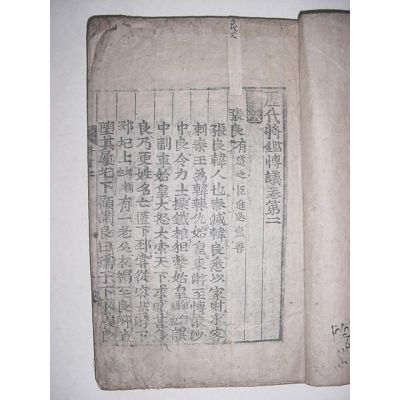 歷代將鑑博議卷第二
張良 有道之臣進退盡善
張良韓人也秦滅韓良悉以家財求客
刺秦王為韓報仇始皇東游至博浪沙
中良令力士操鐵椎狙擊始皇誤
中副車始皇大怒大索天下求賊甚急
良乃更姓名亡匿下邳嘗從容步游下
邳圯上有一老父衣褐至良所直
墮其履圯下顧謂良曰孺子下取履良